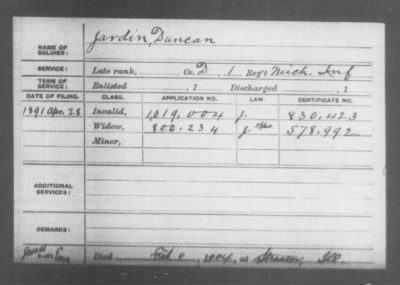 NAME OF SOLDIER: Jardin, Duncan
SERVICE: Late rank, Co. D, 1 Reg't Mich. Inf
TERM OF SERVICE: Enlisted , 1 Discharged , 1
DATE OF FILING. CLASS. APPLICATION NO. LAW. CERTIFICATE NO.
1891 Apr. 28 Invalid, 1,019,004 J. 830,423
Widow, 800,234 J. 578,992
Minor,
ADDITIONAL SERVICES:
REMARKS:
Died Feb 9, 1904, at Streator, Ill.